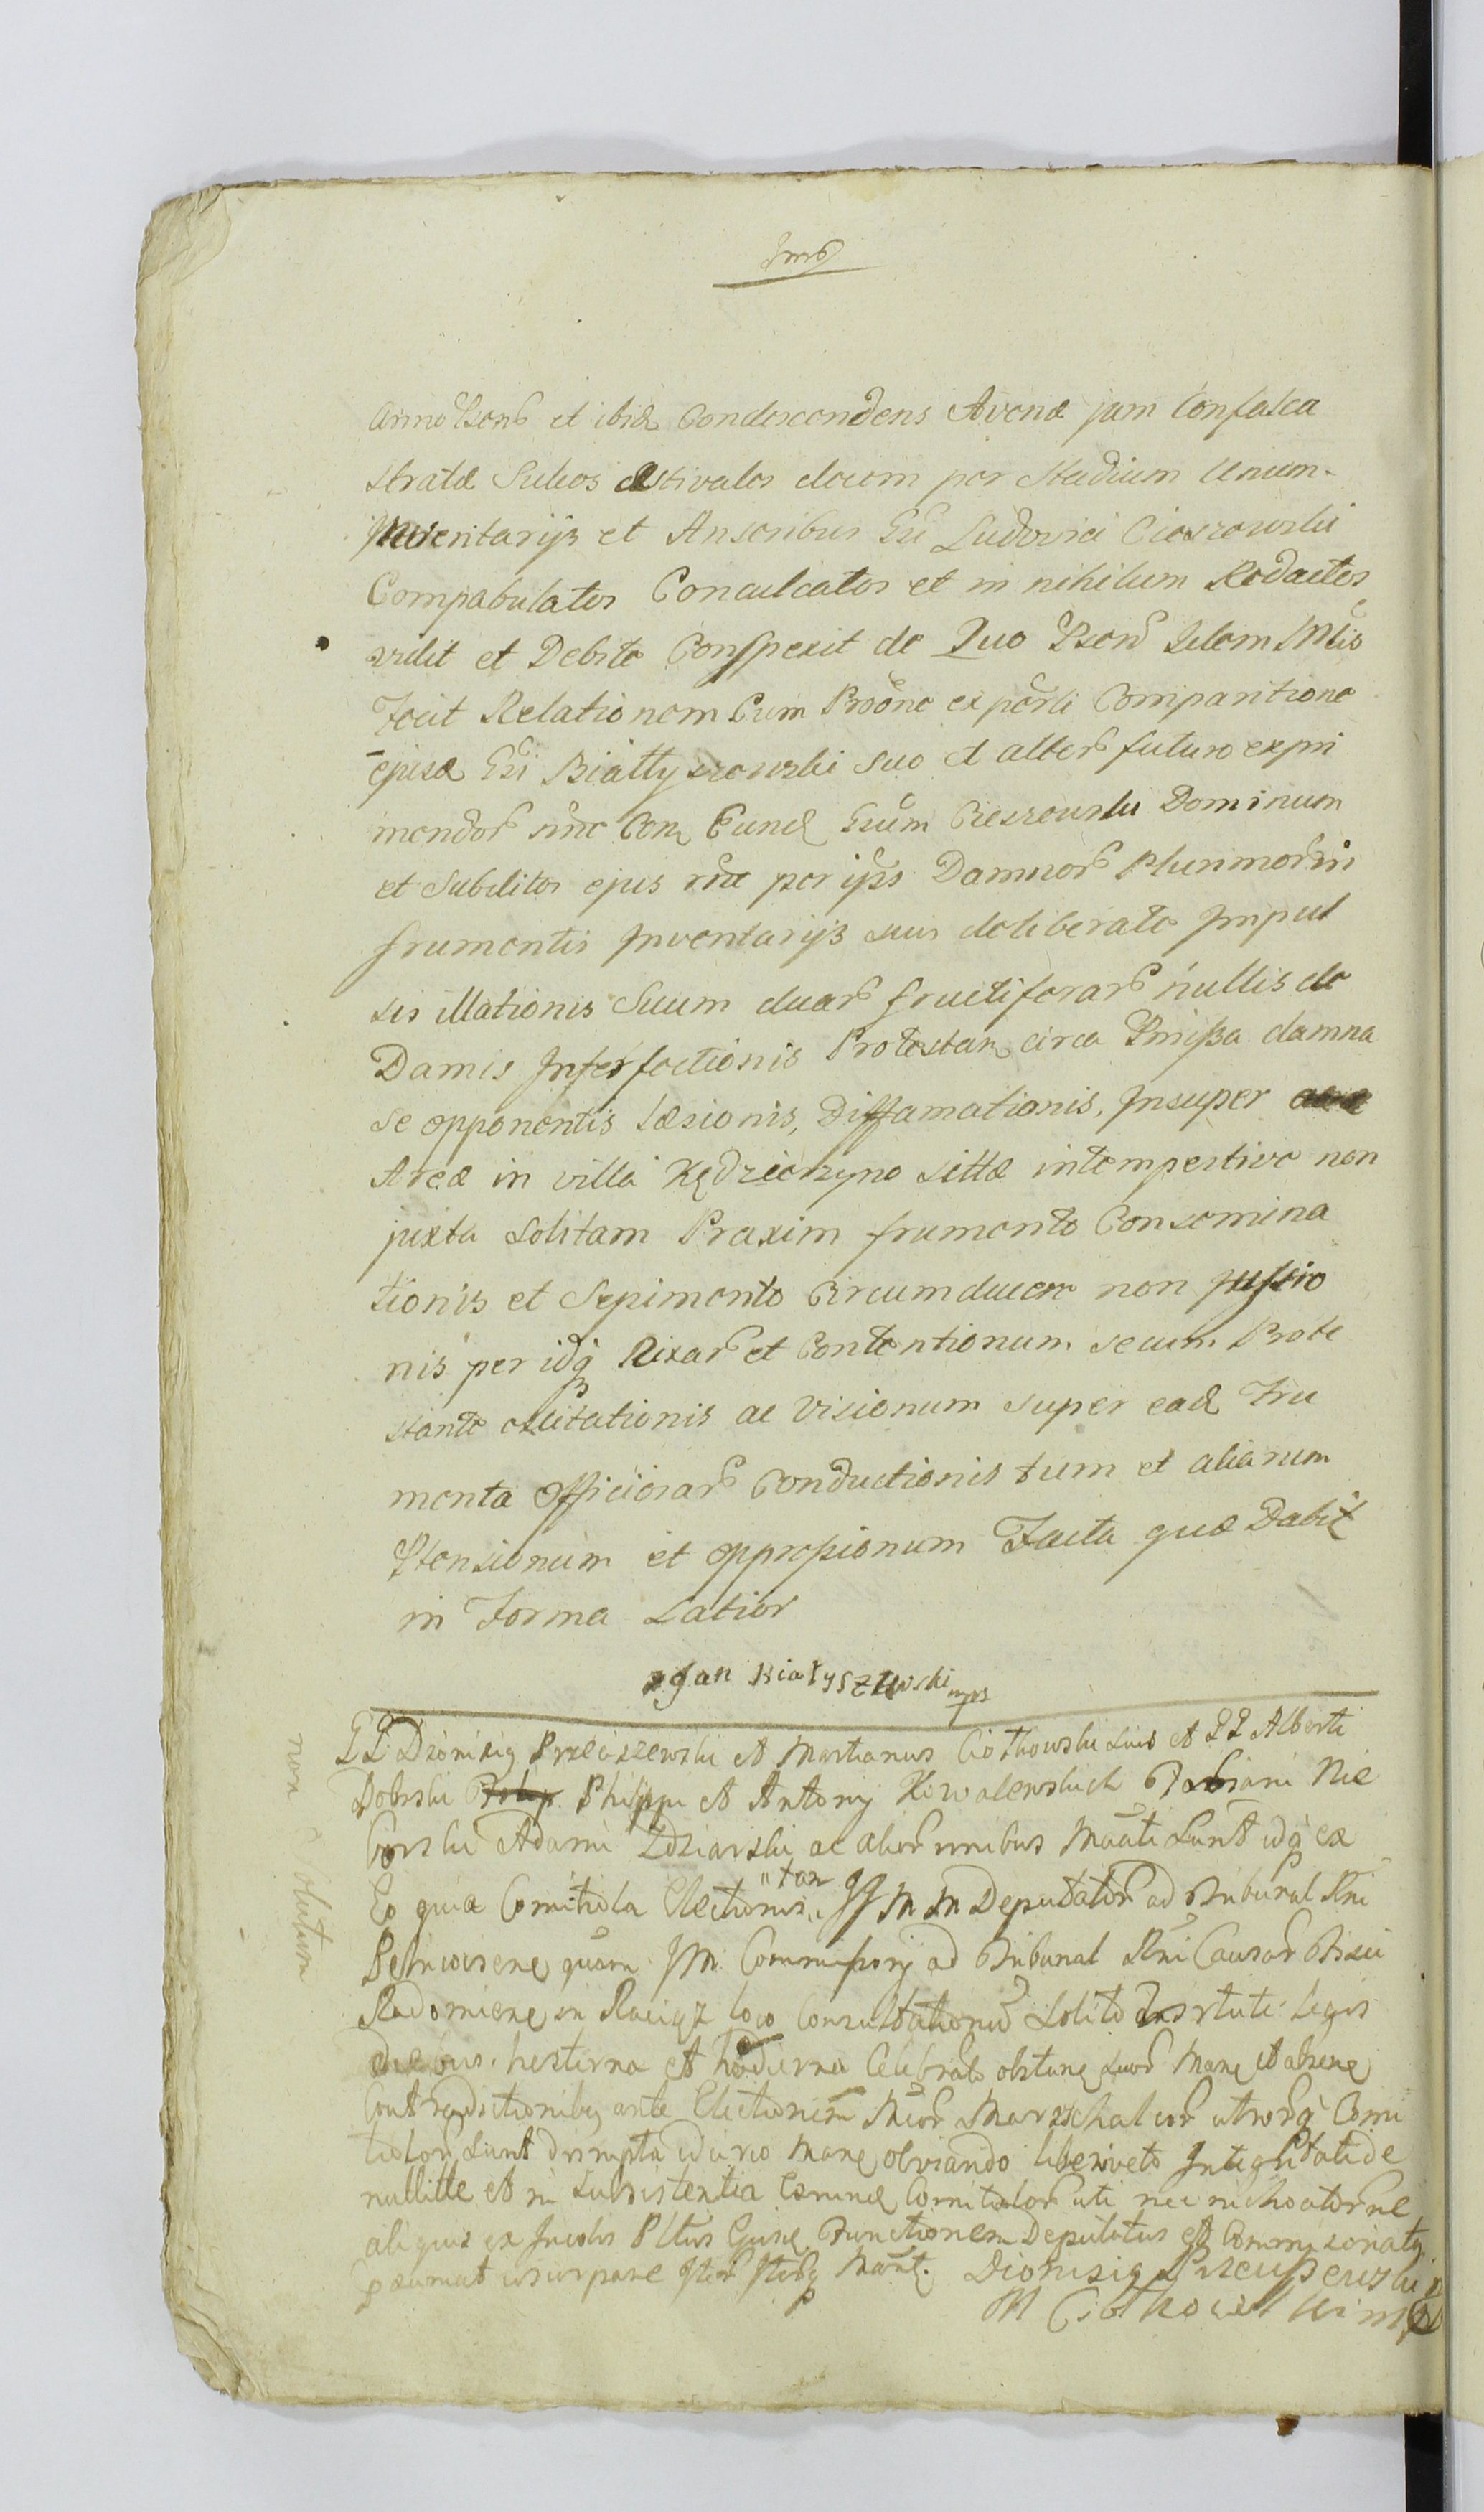 Anno Prnt et ibid Condescendens Avenæ jam Confalca
stratæ Sulcos æstivales decem per Stadium Unum
Inventarijs et Anseribus Gsi Ludovici Cieszewski
Compabulatos Conculcatos et in nihilum Redactos
vidit et Debite Conspexit de Quo Prnt Idem Mlis
Fecit Relationem Cum Prone ex parti Comparitione
ejusd Gsi Białłyszewski suo et alter futuro expri
mendor nne Con Eund Gsum Cieszewski Dominum
et Subditos ejus rne per ipos Damnor Plurimor in
frumentis Inventarijs suis deliberate Impul
sis illationis Suum duar fructiferar nullis de
Damis Interfectionis Protestan circa Præmissa damna
se opponentis Læsionis, Diffamationis, Insuper
Areæ in villa Kędzierzyno sittæ intempestive non
juxta solitam Praxim frumento Consemina
tionis et Sepimento Circumducere non jussio
nis per idq Rixar et Contentionum secum Prote
stante excitationis ac Visionum super ead Fru
menta officiosar Conductionis tum et aliarum
Ptensionum et oppressionum Facta quæ Dabit
in Forma Latior
Jan Białyszewski mpr
GG Dionisig Przeciszewski et Martianus Ciotkowski suis et GG Alberti
Dobrski Philippi et Antonij Kowalewskich Fabiani Nie
borski Adami Zdziarski ac alior nnibus Manti Sunt idq ex
Eo quia Comitiola Electionis tan JJ M M Deputator ad Tribunal Rni
Petricovien quam JM Commissorij ad Tribunal Rni Causar Fisci
Radomien in Raciąż loco Consultationu Solito virtute Legis
diebus hesterna et hodierna Celebrata obstan suor Man et absen
Contradictionibq ante Electionem Mcor Marszhalcor utrorq Comi
tiolor Sunt disrupta idcirco Man obviando liberi veto Integritati de
nullitte et in Subsistentia Earund Comitiolor uti nec inchoator ne
aliquis ex Incolis Pltus Ejusd Functionem Deputatus et Commissoriatq
præsumat usurpare Iter Iterq Mant. Dionisig Przeciszewski
M Ciotkowski mp
non solutum